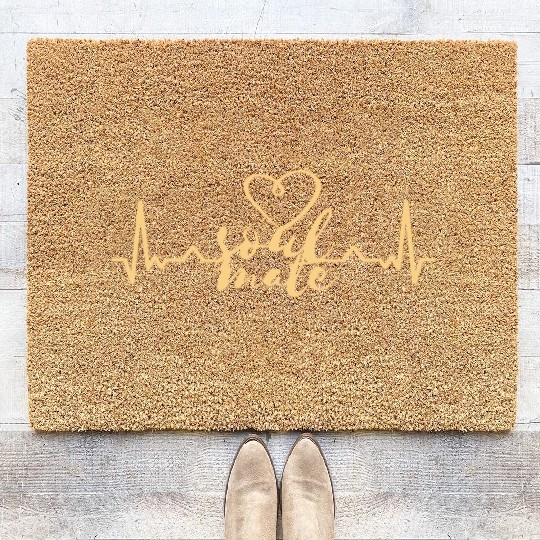 soul
mate